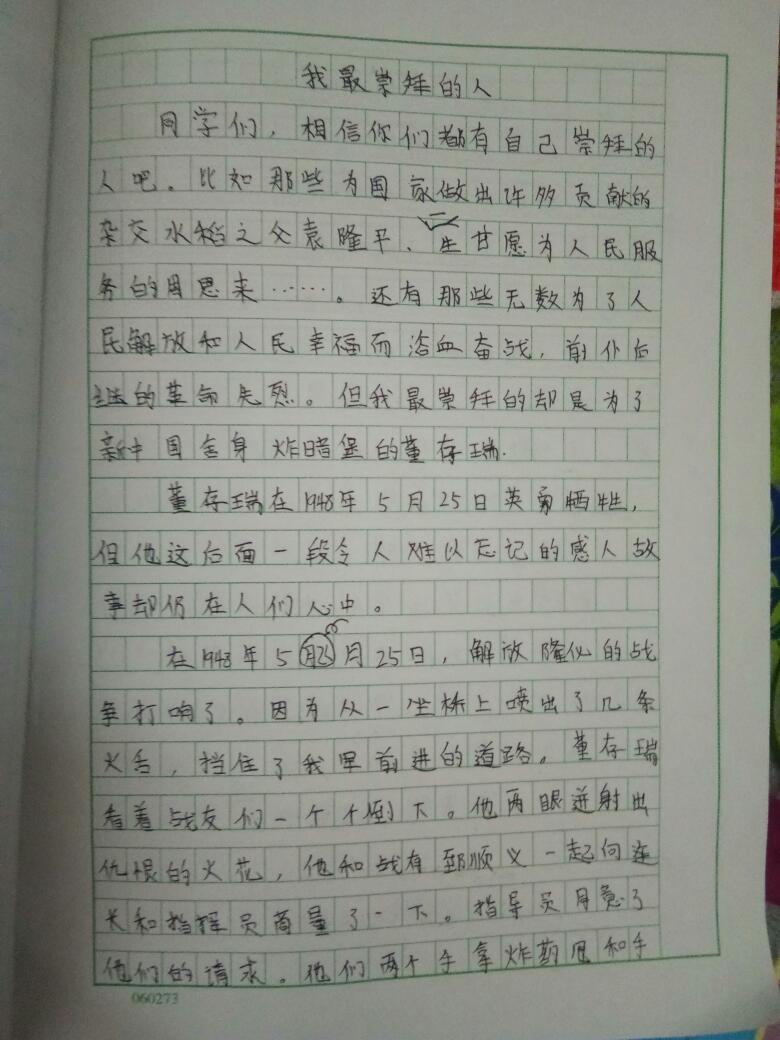 我最崇拜的人
同学们，相信你们都有自己崇拜的
人吧。比如那些为国家做出许多贡献的
杂交水稻之父袁隆平、一生甘愿为人民服
务的周恩来……。还有那些无数为了人
民解放和人民幸福而浴血奋战，前仆后
继的革命先烈。但我最崇拜的却是为了
新中国舍身炸暗堡的董存瑞.
董存瑞在1948年5月25日英勇牺牲，
但他这后面一段令人难以忘记的感人故
事却仍在人们心中。
在1948年5月25日，解放隆化的战
争打响了。因为从一坐桥上喷出了几条
火舌，挡住了我军前进的道路。董存瑞
看着战友们一个个倒下。他两眼迸射出
仇恨的火花，他和战有郅顺义一起向连
长和指挥员商量了一下。指导员同意了
他们的请求。他们两个手拿炸药包和手
060273